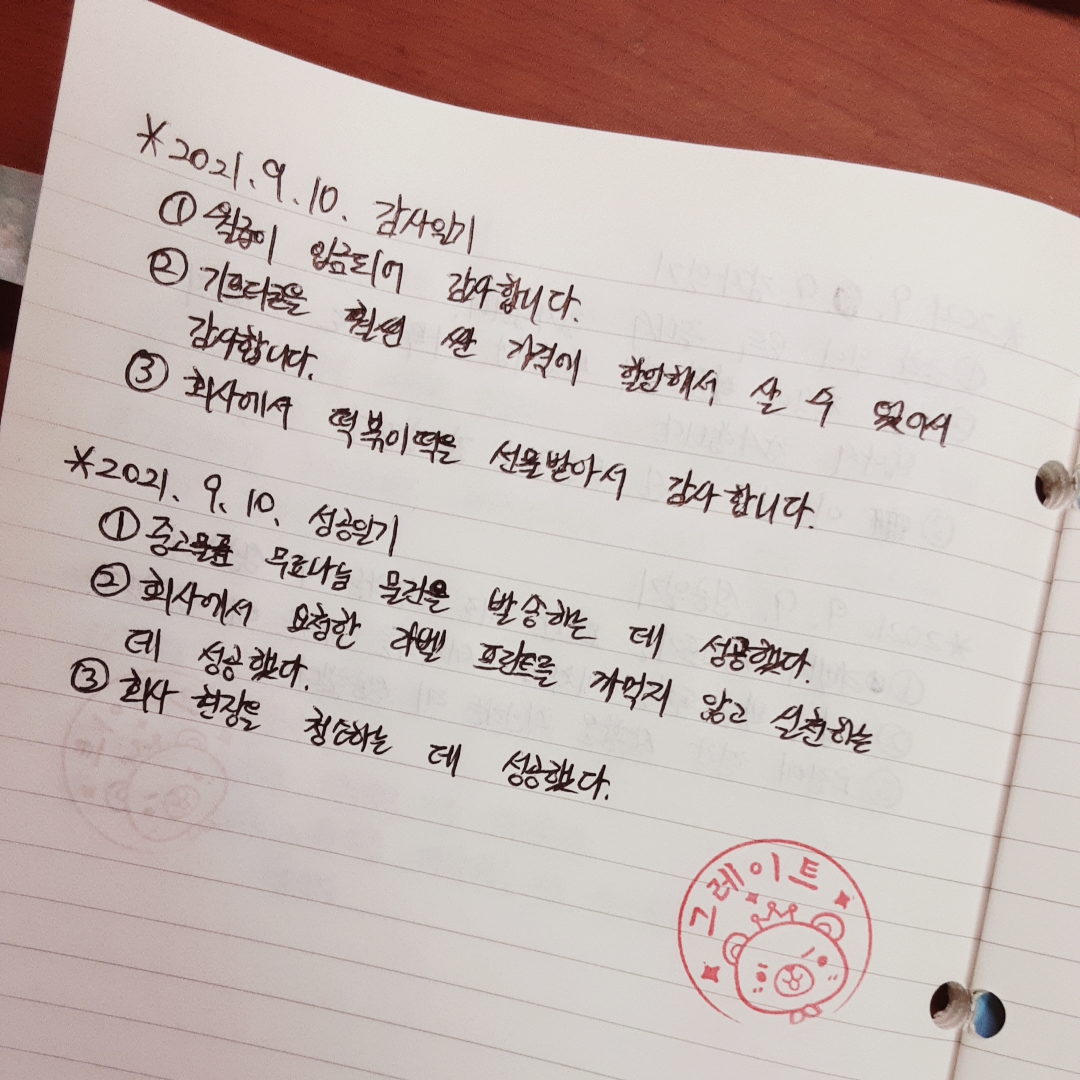 *2021.9.10. 감사일기
① 월급이 입금되어 감사합니다.
② 기프티콘을 훨씬 싼 가격에 할인해서 살 수 있어서
감사합니다.
③ 회사에서 떡볶이떡을 선물받아서 감사합니다.
*2021. 9. 10. 성공일기
① 중고물품 무료나눔 물건을 발송하는 데 성공했다.
② 회사에서 요청한 라벨 프린트를 까먹지 않고 실천하는
데 성공했다.
③ 회사 현장을 청소하는 데 성공했다.
그레이트